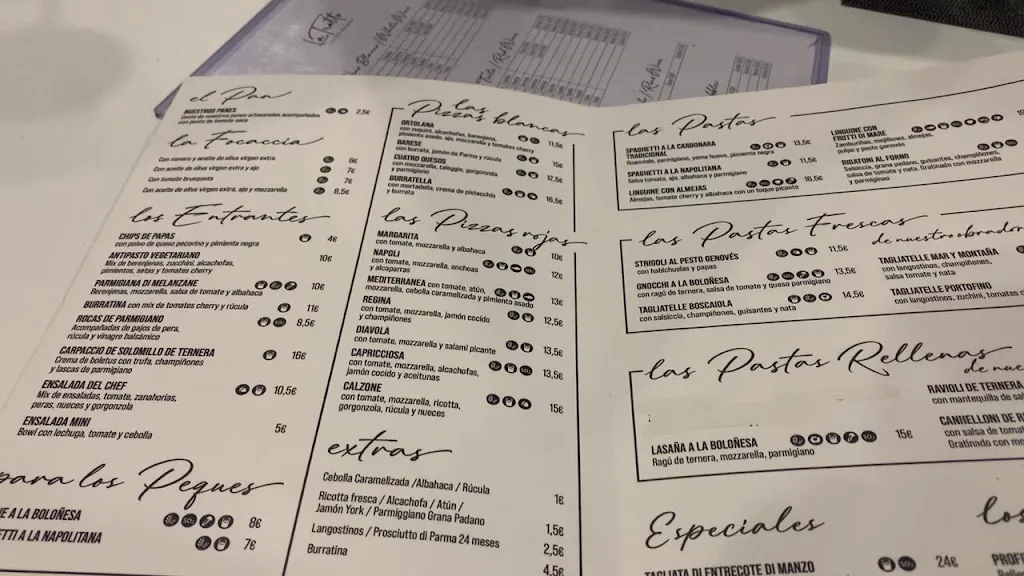 el Pan
NUESTROS PANES 2,5€
Cesta de nuestros panes artesanales acompañados
con pesto de tomate seco
la Focaccia
Con romero y aceite de oliva virgen extra 6€
Con aceite de oliva virgen extra y ajo 7€
Con tomate brusqueta 7€
Con aceite de oliva virgen extra, ajo y mozzarella 8,5€
los Entrantes
CHIPS DE PAPAS 4€
con polvo de queso pecorino y pimienta negra
ANTIPASTO VEGETARIANO 10€
Mix de berenjenas, zucchini, alcachofas,
pimientos, setas y tomates cherry
PARMIGIANA DI MELANZANE 10€
Berenjenas, mozzarella, salsa de tomate y albahaca
BURRATINA con mix de tomates cherry y rúcula 11€
ROCAS DE PARMIGIANO 8,5€
Acompañadas de gajos de pera,
rúcula y vinagre balsámico
CARPACCIO DE SOLOMILLO DE TERNERA 16€
Crema de boletus con trufa, champiñones
y lascas de parmigiano
ENSALADA DEL CHEF 10,5€
Mix de ensaladas, tomate, zanahorias,
peras, nueces y gorgonzola
ENSALADA MINI 5€
Bowl con lechuga, tomate y cebolla
para los Peques
E A LA BOLOÑESA 8€
ETTI A LA NAPOLITANA 7€
las
Pizzas blancas
ORTOLANA 11,5€
con zuquini, alcachofas, berenjena,
pimiento asado, ajo, mozzarella y tomates cherry
BARESE 15€
con burrata, jamón de Parma y rúcula
CUATRO QUESOS 12,5€
con mozzarella, taleggio, gorgonzola
y parmigiano
BURRATELLA 16,5€
con mortadella, crema de pistacchio
y burrata
las Pizzas rojas
MARGARITA 10€
con tomate, mozzarella y albahaca
NAPOLI 12€
con tomate, mozzarella, anchoas
y alcaparras
MEDITERRANEA con tomate, atún, 13€
mozzarella, cebolla caramelizada y pimiento asado
REGINA 12,5€
con tomate, mozzarella, jamón cocido
y champiñones
DIAVOLA 13,5€
con tomate, mozzarella y salami picante
CAPRICCIOSA 13,5€
con tomate, mozzarella, alcachofas,
jamón cocido y aceitunas
CALZONE 15€
con tomate, mozzarella, ricotta,
gorgonzola, rúcula y nueces
extras
Cebolla Caramelizada /Albahaca / Rúcula 1€
Ricotta fresca / Alcachofa / Atún /
Jamón York / Parmiggiano Grana Padano 1,5€
Langostinos / Prosciutto di Parma 24 meses 2,5€
Burratina 4,5€
las Pastas
SPAGHETTI A LA CARBONARA
TRADICIONAL 13,5€
Guanciale, parmigiano, yema huevo, pimienta negra
SPAGHETTI A LA NAPOLITANA 11,5€
Salsa tomate, ajo, albahaca y parmigiano
LINGUINE CON ALMEJAS 16,5€
Almejas, tomate cherry y albahaca con un toque picante
LINGUINE CON
FRUTTI DI MARE
Zamburiñas, mejillones, almejas,
pulpo y pesto genovés
RIGATONI AL FORNO
Salsiccia, grana padano, guisantes, champiñones,
salsa de tomate y nata. Gratinado con mozzarella
y parmigiano
las Pastas Frescas
de nuestro obrador
STRIGOLI AL PESTO GENOVÉS 11,5€
con habichuelas y papas
GNOCCHI A LA BOLOÑESA 13,5€
con ragú de ternera, salsa de tomate y queso parmigiano
TAGLIATELLE BOSCAIOLA 14,5€
con salsiccia, champiñones, guisantes y nata
TAGLIATELLE MAR Y MONTAÑA
con langostinos, champiñones,
salsa tomate y nata
TAGLIATELLE PORTOFINO
con langostinos, zuchini, tomates
las Pastas Rellenas
de nue
LASAÑA A LA BOLOÑESA 15€
Ragú de ternera, mozzarella, parmigiano
RAVIOLI DE TERNERA
con mantequilla de sal
CANNELLONI DE R
con salsa de tomat
Gratinado con mo
Especiales
TAGLIATA DI ENTRECOTE DI MANZO 24€
los
PROFI
Relle